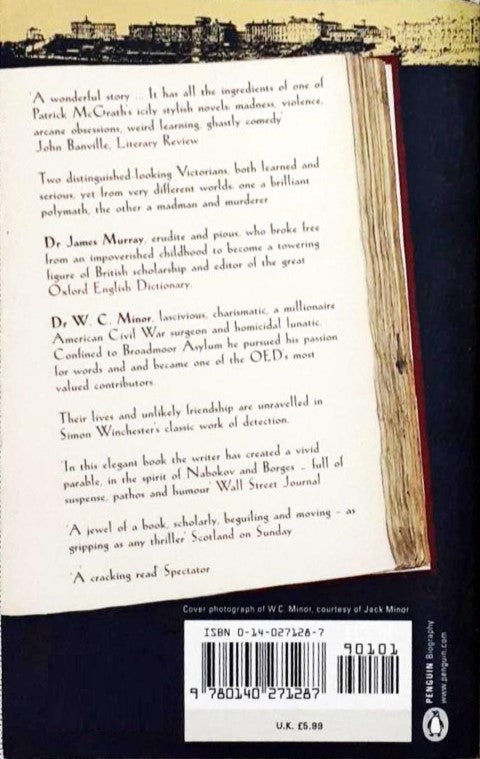 'A wonderful story ... It has all the ingredients of one of
Patrick McGrath's icily stylish novels: madness, violence,
arcane obsessions, weird learning, ghastly comedy'
John Banville, Literary Review
Two distinguished-looking Victorians, both learned and
serious, yet from very different worlds: one a brilliant
polymath, the other a madman and murderer
Dr James Murray, erudite and pious, who broke free
from an impoverished childhood to become a towering
figure of British scholarship and editor of the great
Oxford English Dictionary.
Dr W. C. Minor, lascivious, charismatic, a millionaire
American Civil War surgeon and homicidal lunatic.
Confined to Broadmoor Asylum he pursued his passion
for words and and became one of the OED's most
valued contributors.
Their lives and unlikely friendship are unravelled in
Simon Winchester's classic work of detection.
'In this elegant book the writer has created a vivid
parable, in the spirit of Nabokov and Borges – full of
suspense, pathos and humour' Wall Street Journal
'A jewel of a book, scholarly, beguiling and moving – as
gripping as any thriller' Scotland on Sunday
'A cracking read' Spectator
Cover photograph of W.C. Minor, courtesy of Jack Minor
ISBN 0-14-027128-7
90101
9 780140 271287
U.K. £6.99
PENGUIN Biography
www.penguin.com